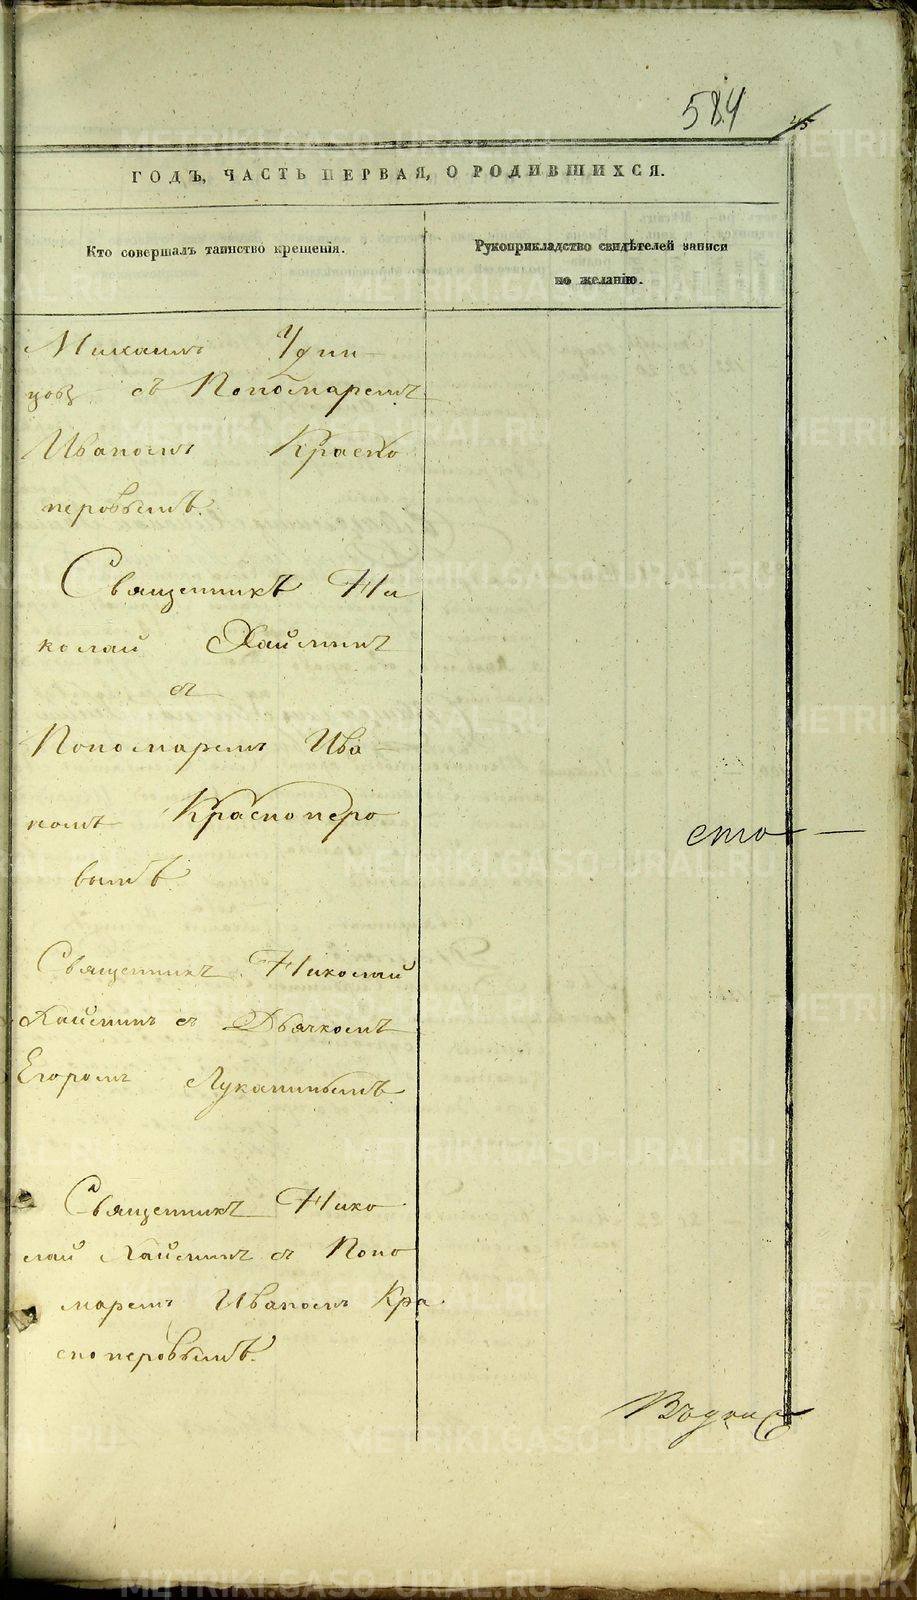 584
45
ГОДЪ, ЧАСТЬ ПЕРВАЯ, О РОДИВШИХСЯ.
Кто совершалъ таинство крещенія.
Рукоприкладство свидѣтелей записи
по желанію.
Михаилъ Удин
цовъ съ Пономаремъ
Иваномъ Красно
перовымъ.
Священникъ Ни
колай Хайминъ
съ
Пономаремъ Ива
номъ Красноперо
вымъ.
сто
Священникъ Николай
Хайминъ съ Дьячкомъ
Егоромъ Луканинымъ
Священникъ Нико
лай Хайминъ съ Поно
маремъ Иваномъ Кра
сноперовымъ.
METRIKI.GASO-URAL.RU